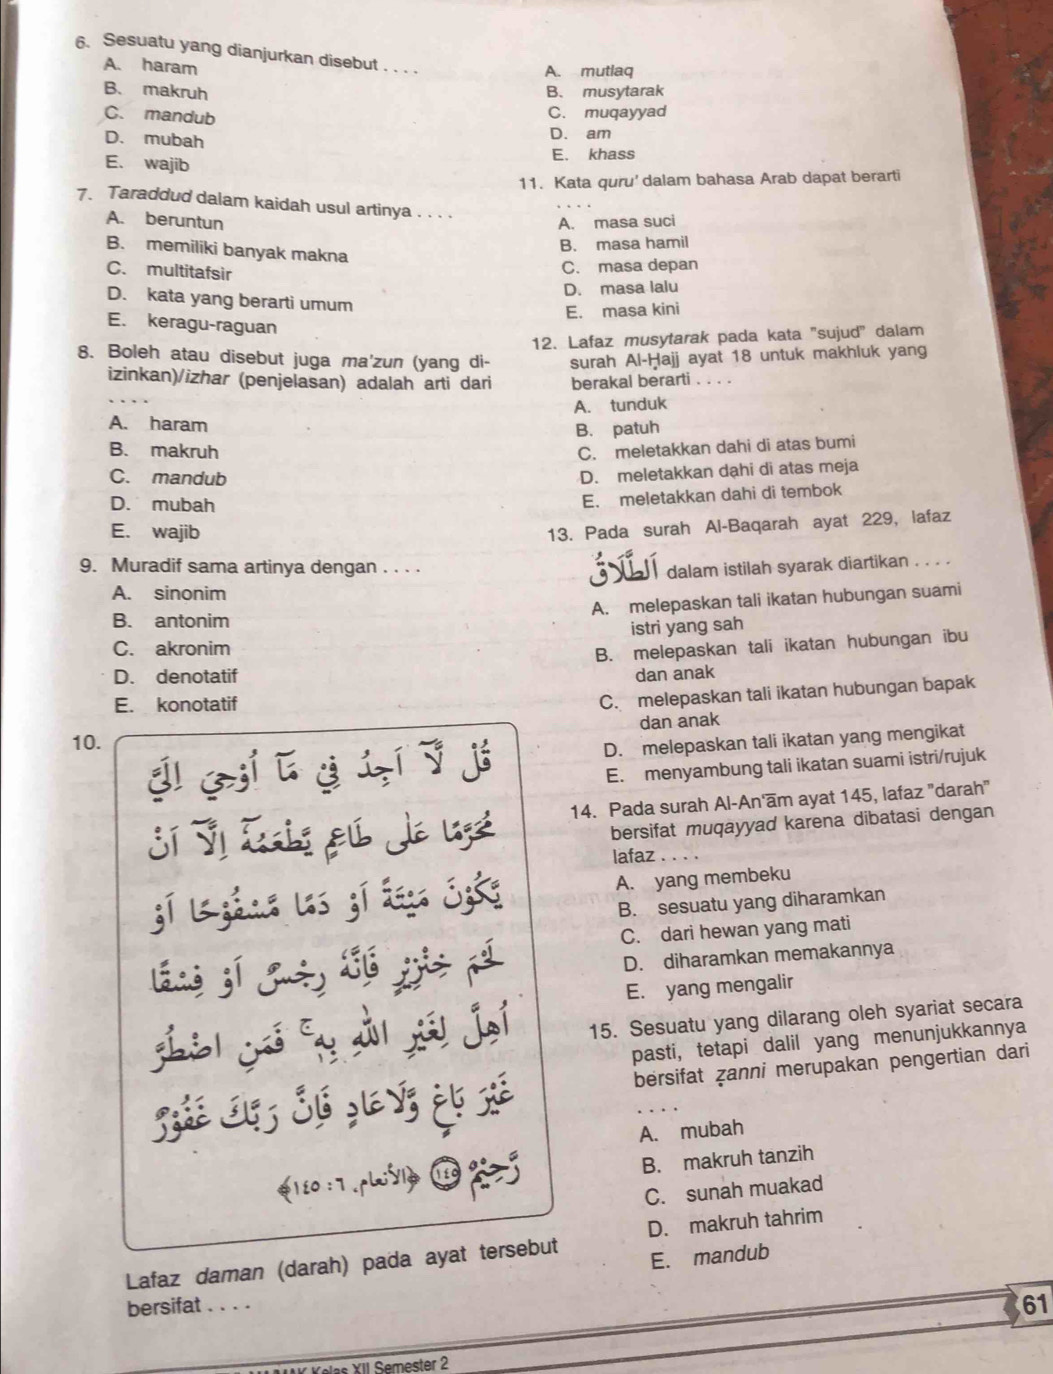 6. Sesuatu yang dianjurkan disebut . . . .
A. haram
B. makruh
C. mandub
D. mubah
E. wajib
7. Taraddud dalam kaidah usul artinya . . . .
A. beruntun
B. memiliki banyak makna
C. multitafsir
D. kata yang berarti umum
E. keragu-raguan
8. Boleh atau disebut juga ma'zun (yang di-
izinkan)/izhar (penjelasan) adalah arti dari
. . . .
A. haram
B. makruh
C. mandub
D. mubah
E. wajib
9. Muradif sama artinya dengan . . . .
A. sinonim
B. antonim
C. akronim
D. denotatif
E. konotatif
10.
قُلْ لَّآ اَجِدُ فِيْ مَآ اُوْحِيَ اِلَيَّ
مُحَرَّمًا عَلٰى طَاعِمٍ يَّطْعَمُهٗٓ اِلَّآ اَنْ
يَّكُوْنَ مَيْتَةً اَوْ دَمًا مَّسْفُوْحًا اَوْ
لَحْمَ خِنْزِيْرٍ فَاِنَّهٗ رِجْسٌ اَوْ فِسْقًا
اُهِلَّ لِغَيْرِ اللّٰهِ بِهٖۚ فَمَنِ اضْطُرَّ
غَيْرَ بَاغٍ وَّلَا عَادٍ فَاِنَّ رَبَّكَ غَفُوْرٌ
رَّحِيْمٌ ١٤٥ ﴿الأنعام، ٦: ١٤٥﴾
Lafaz daman (darah) pada ayat tersebut
bersifat . . . .
A. mutlaq
B. musytarak
C. muqayyad
D. am
E. khass
11. Kata quru' dalam bahasa Arab dapat berarti
. . . .
A. masa suci
B. masa hamil
C. masa depan
D. masa lalu
E. masa kini
12. Lafaz musytarak pada kata "sujud" dalam
surah Al-Ḥajj ayat 18 untuk makhluk yang
berakal berarti . . . .
A. tunduk
B. patuh
C. meletakkan dahi di atas bumi
D. meletakkan dahi di atas meja
E. meletakkan dahi di tembok
13. Pada surah Al-Baqarah ayat 229, lafaz
اَلطَّلَاقُ dalam istilah syarak diartikan . . . .
A. melepaskan tali ikatan hubungan suami
istri yang sah
B. melepaskan tali ikatan hubungan ibu
dan anak
C. melepaskan tali ikatan hubungan bapak
dan anak
D. melepaskan tali ikatan yang mengikat
E. menyambung tali ikatan suami istri/rujuk
14. Pada surah Al-An'ām ayat 145, lafaz "darah"
bersifat muqayyad karena dibatasi dengan
lafaz . . . .
A. yang membeku
B. sesuatu yang diharamkan
C. dari hewan yang mati
D. diharamkan memakannya
E. yang mengalir
15. Sesuatu yang dilarang oleh syariat secara
pasti, tetapi dalil yang menunjukkannya
bersifat ẓanni merupakan pengertian dari
. . . .
A. mubah
B. makruh tanzih
C. sunah muakad
D. makruh tahrim
E. mandub
61
Kelas XII Semester 2